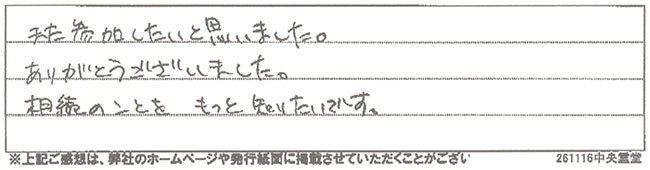 また参加したいと思いました。
ありがとうございました。
相続のことを もっと知りたいです。
※上記ご感想は、弊社のホームページや発行紙面に掲載させていただくことがござい
261116中央霊堂